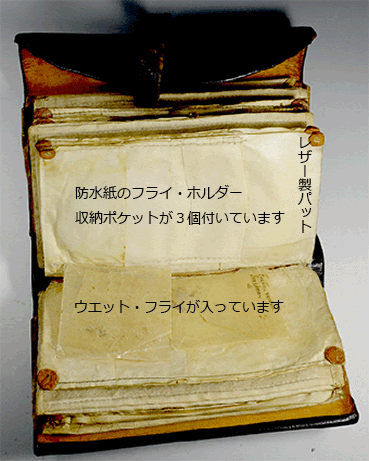 防水紙のフライ・ホルダー
収納ポケットが３個付いています
レザー製パット
ウエット・フライが入っています